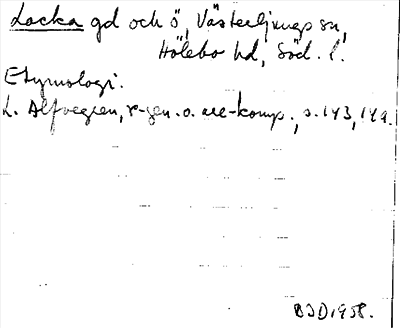 Locka gd och ö, Västerljungs sn,
Hölebo hd, Söd. l.
Etymologi.
L. Alfvegren, r-gen. o. are-komp., s. 143, 149.
BJD 1958.